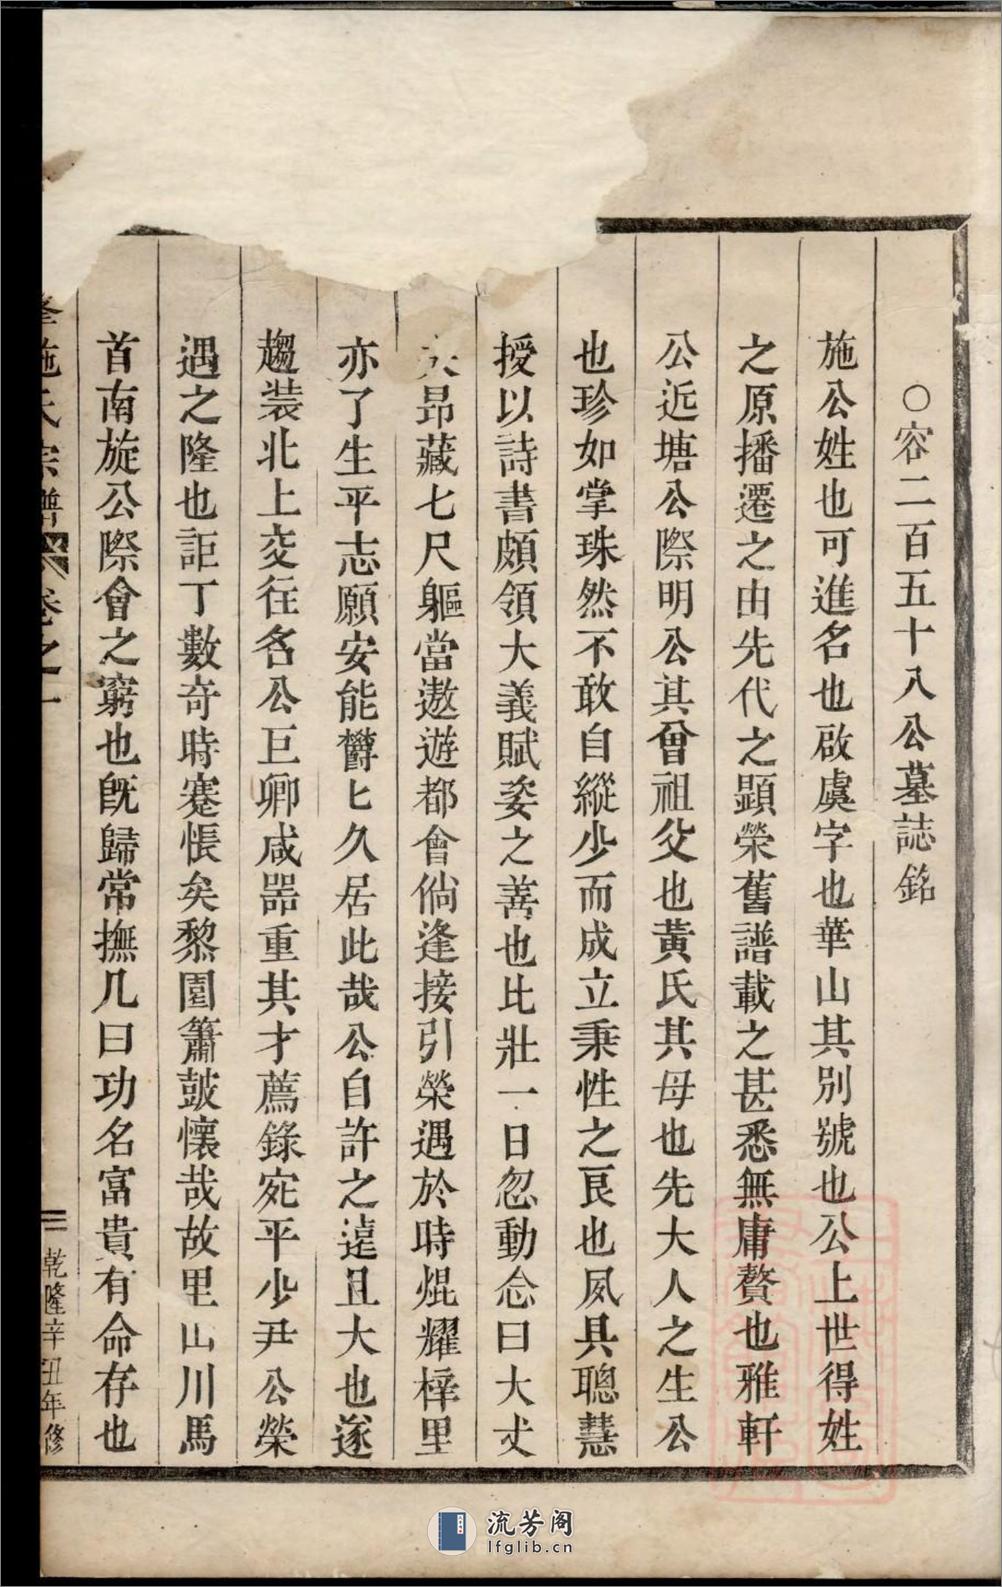 ○容二百五十八公墓誌銘
施公姓也可進名也啟虞字也華山其別號也公上世得姓
之原播遷之由先代之顯榮舊譜載之甚悉無庸贅也雅軒
公近塘公際明公其曾祖父也黃氏其母也先大人之生公
也珍如掌珠然不敢自縱少而成立秉性之良也夙具聰慧
授以詩書頗領大義賦姿之善也比壯一日忽動念曰大丈
夫昂藏七尺軀當遨遊都會倘逢接引榮遇於時焜耀梓里
亦了生平志願安能欝匕久居此哉公自許之遠且大也遂
趨装北上交往名公巨卿咸噐重其才薦錄宛平少尹公榮
遇之隆也詎丁數奇時蹇悵矣黎園簫皷懷哉故里山川馬
首南旋公際會之窮也旣歸常撫几曰功名富貴有命存也
施氏宗譜 卷之一 乾隆辛丑年修
流芳阁
lfglib.cn